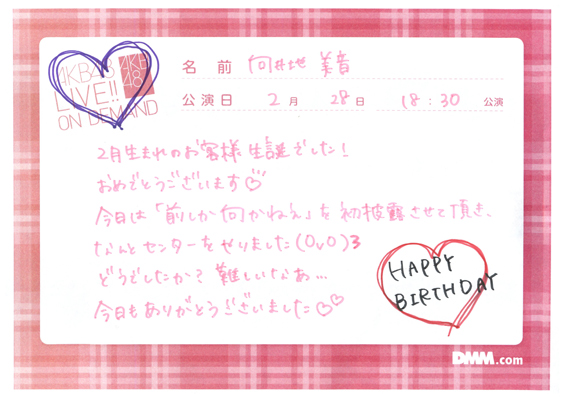 AKB48
LIVE!!
ON DEMAND
AKB
48
名 前 向井地 美音
公演日 2月 28日 18:30 公演
2月生まれのお客様生誕でした!
おめでとうございます♡
今日は「前しか向かねえ」を初披露させて頂き、
なんとセンターをやりました(OvO)3
どうでしたか? 難しいなぁ…
今日もありがとうございました♡♡
HAPPY
BIRTHDAY
DMM.com